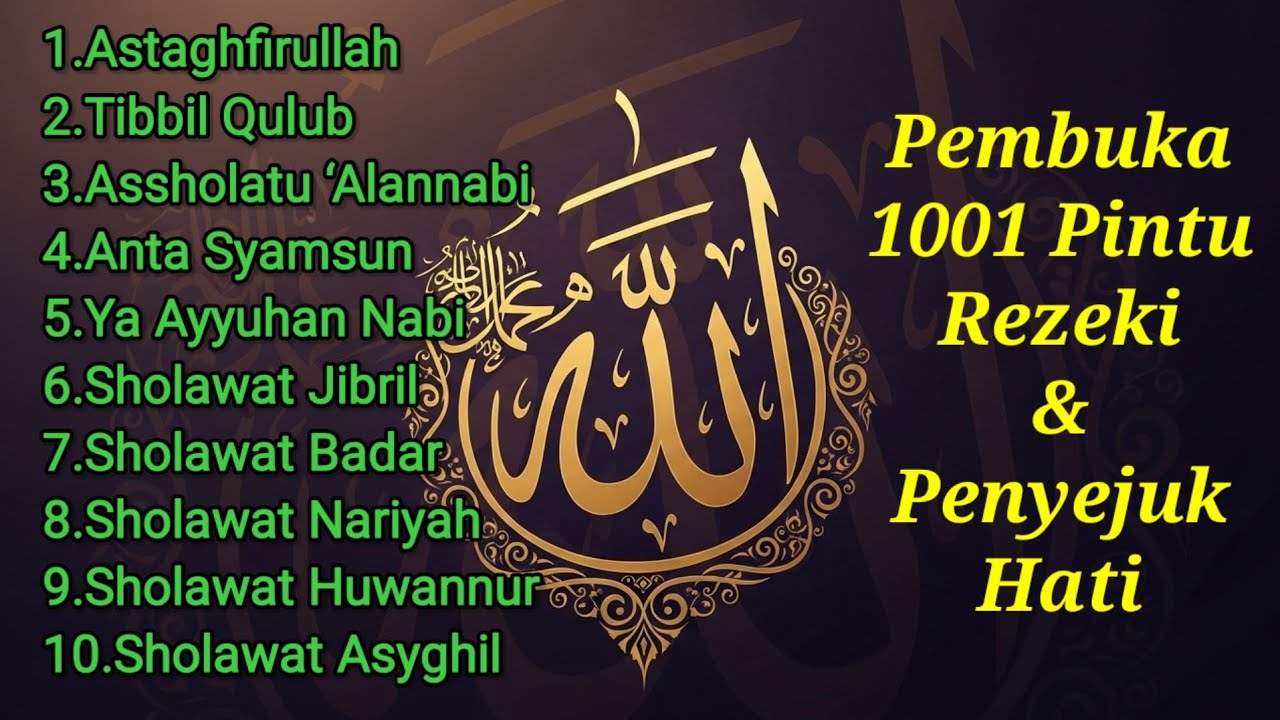 1.Astaghfirullah
2.Tibbil Qulub
3.Assholatu ‘Alannabi
4.Anta Syamsun
5.Ya Ayyuhan Nabi
6.Sholawat Jibril
7.Sholawat Badar
8.Sholawat Nariyah
9.Sholawat Huwannur
10.Sholawat Asyghil
الله
Pembuka
1001 Pintu
Rezeki
&
Penyejuk
Hati